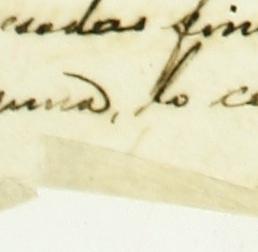 esadas fin
guna, lo ce